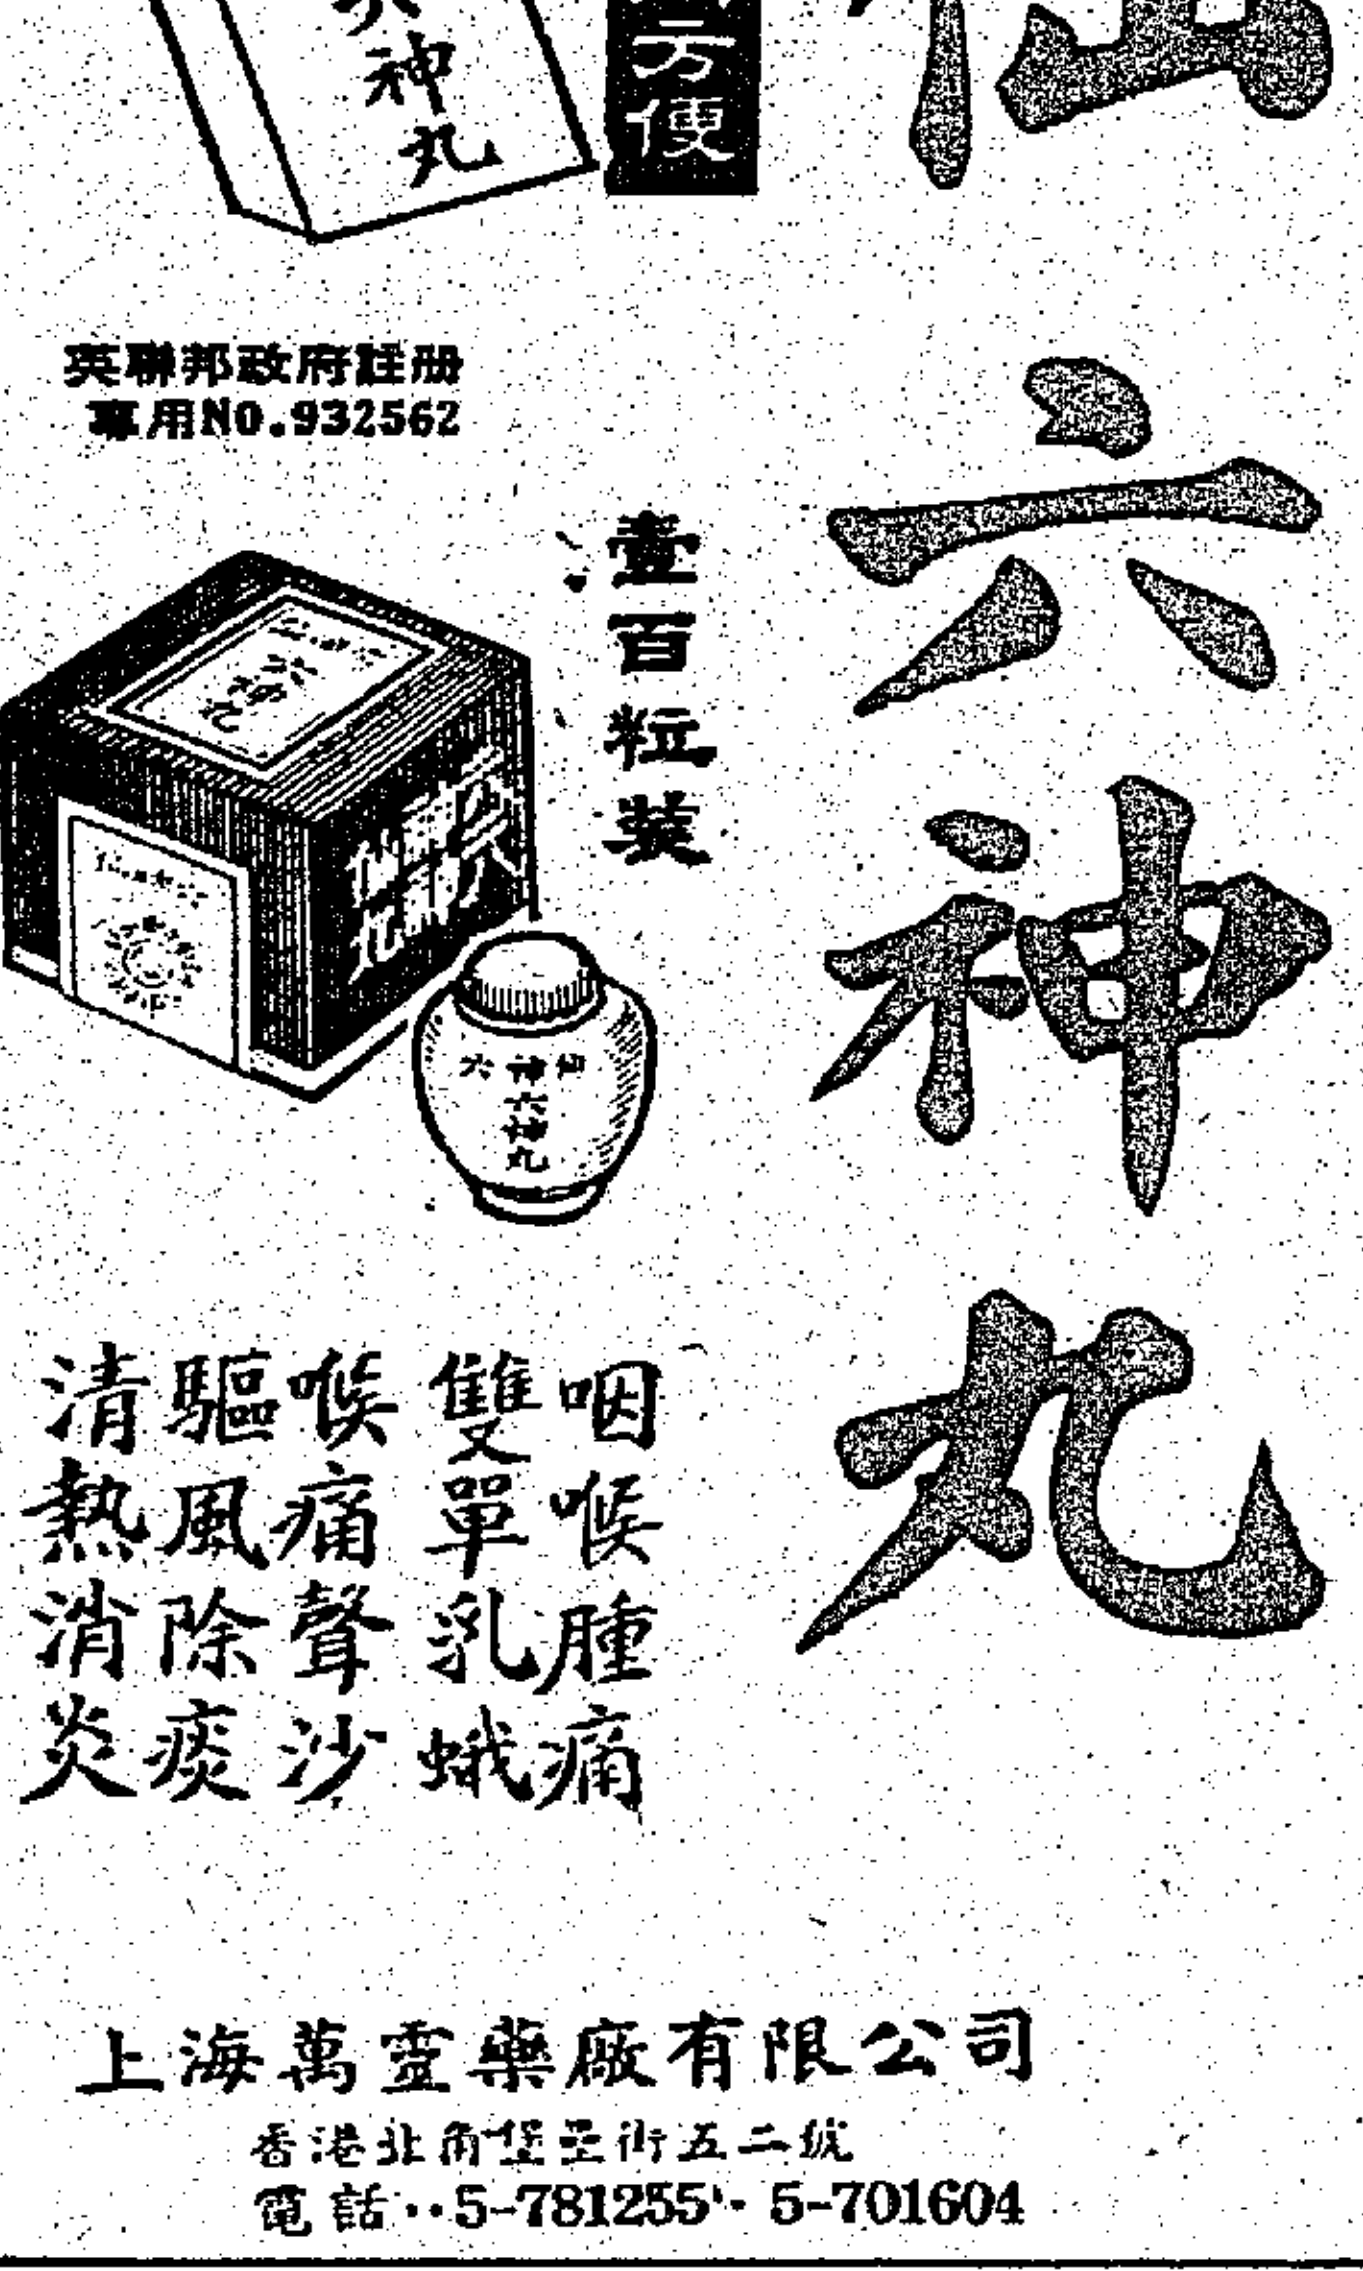 仙六神丸
方便
六神丸
英聯邦政府註册
專用NO.932562
壹百粒裝
六神丸
六神丸
神六神丸
咽喉腫痛
雙單乳蛾
喉痛聲沙
驅風除痰
清熱消炎
上海萬靈藥廠有限公司
香港北角堡壘街五二號
電話：5-781255 · 5-701604